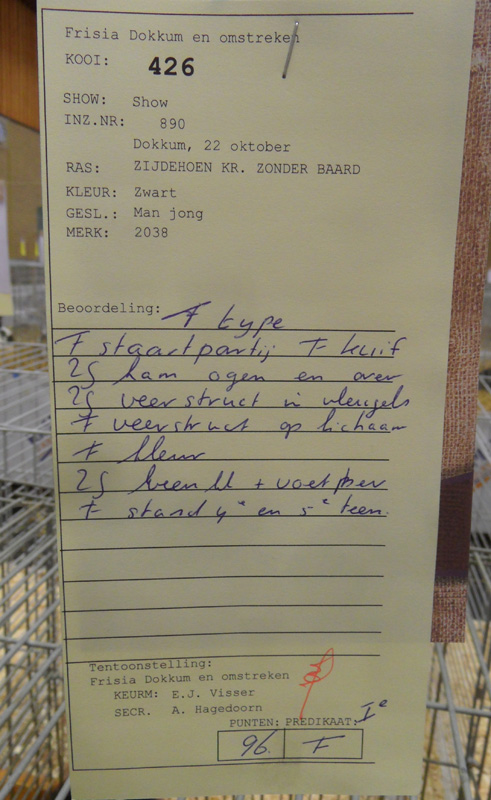 Frisia Dokkum en omstreken
KOOI: 426
SHOW: Show
INZ.NR: 890
Dokkum, 22 oktober
RAS: ZIJDEHOEN KR. ZONDER BAARD
KLEUR: Zwart
GESL.: Man jong
MERK: 2038
Beoordeling: F type
F staartpartij F kuif
ZG kam ogen en over
ZG veerstruct in vleugels
F veerstruct op lichaam
F kleur
ZG beenkl + voetbev
F stand 4e en 5e teen.
Tentoonstelling:
Frisia Dokkum en omstreken
KEURM: E.J. Visser
SECR. A. Hagedoorn
PUNTEN: PREDIKAAT: Ie
96. F